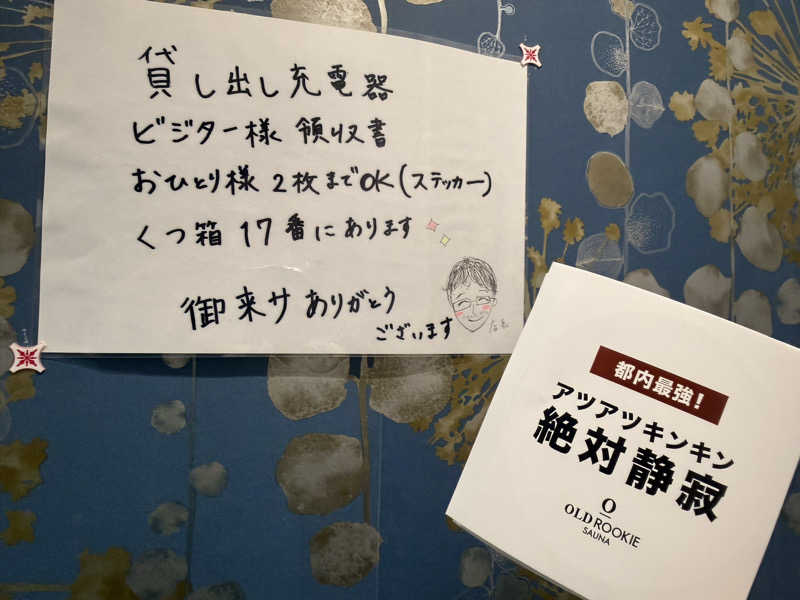 貸し出し充電器
ビジター様 領収書
おひとり様 2枚までOK(ステッカー)
くつ箱 17番にあります
御来サありがとう
ございます
店長
都内最強!
アツアツキンキン
絶対静寂
OLD ROOKIE
SAUNA